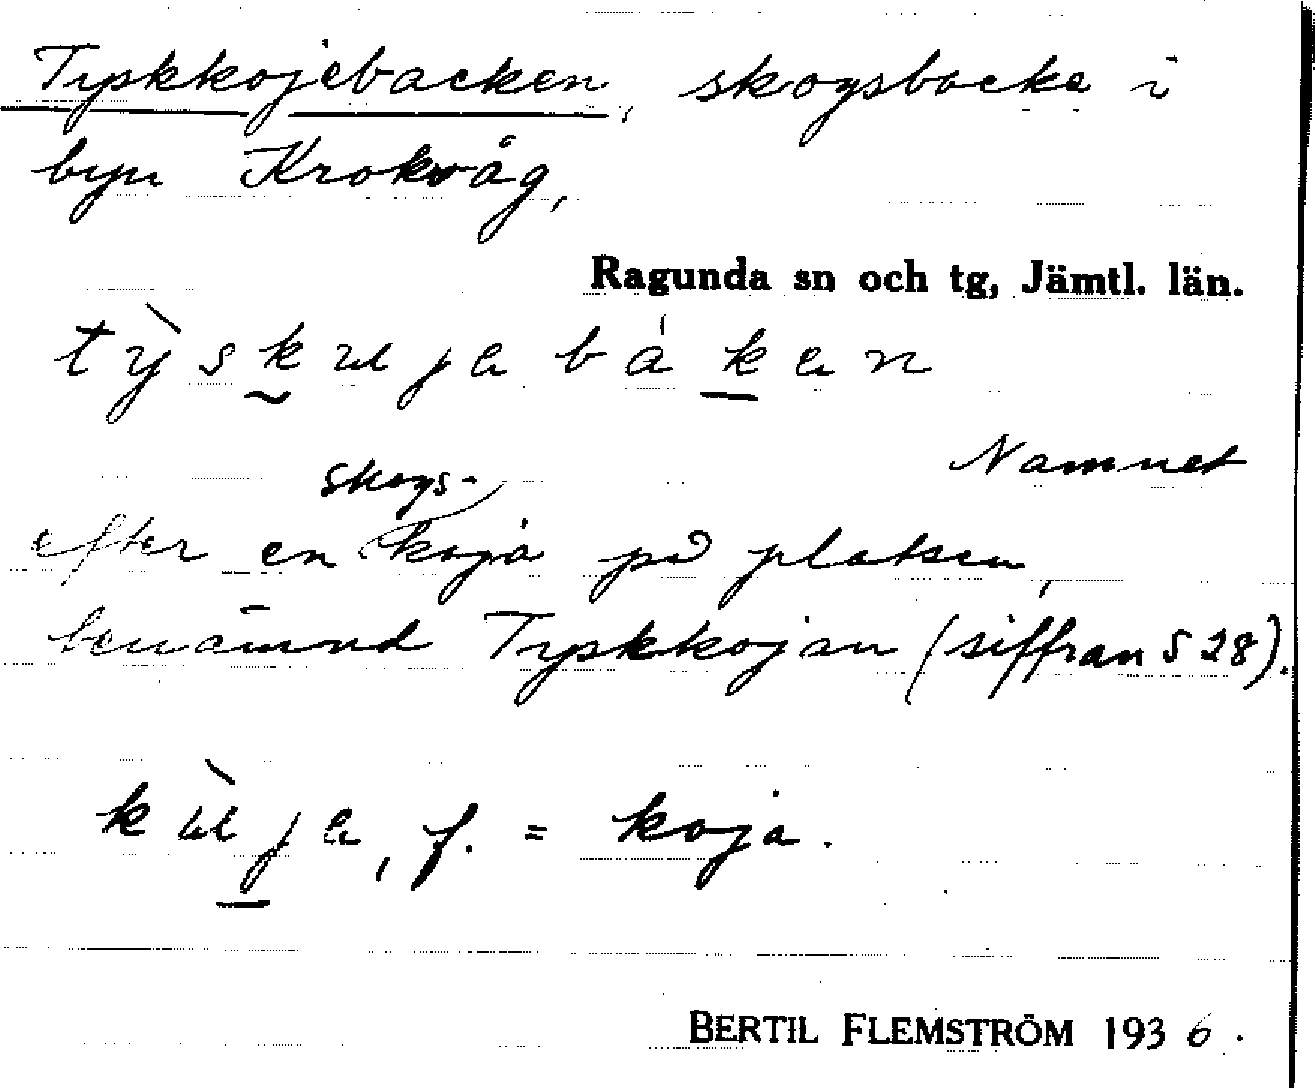 Tyskkojebacken, skogsbacke i
byn Krokvåg,
Ragunda sn och tg, Jämtl. län.
tỳskujebáken
Namnet
skogs-
efter en koja på platsen,
benämnd Tyskkojan (siffran 528).
kùje, f. = koja.
BERTIL FLEMSTRÖM 1936.